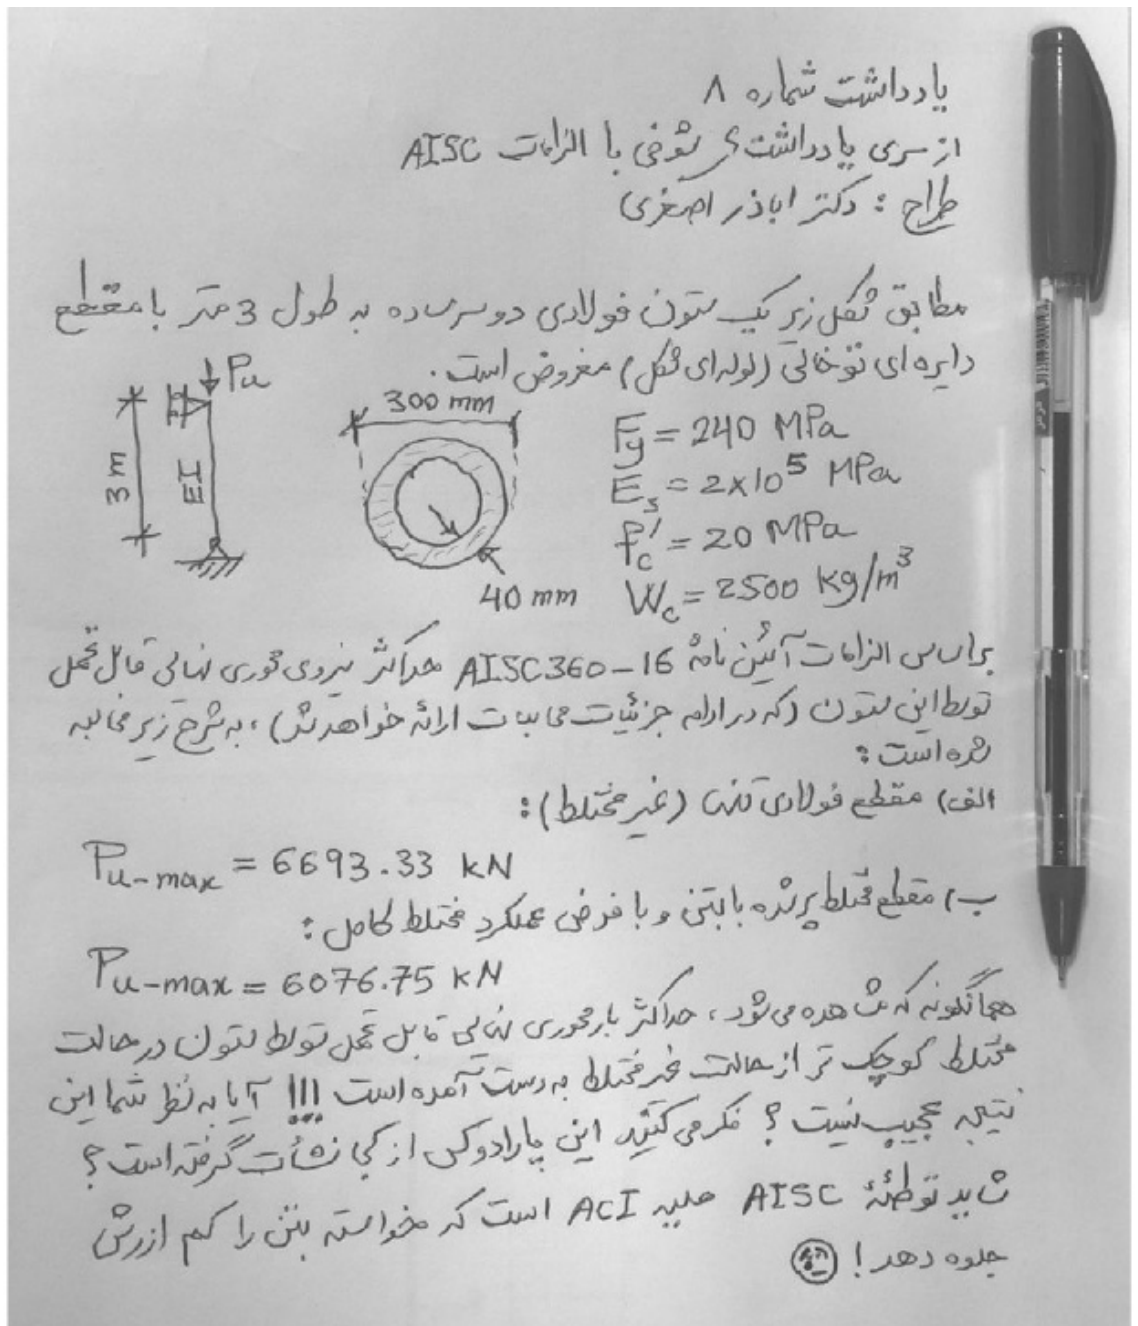 یادداشت شماره ۸
از سری یادداشت‌های شوخی با الزامات AISC
طراح : دکتر اباذر اصغری
مطابق شکل زیر یک ستون فولادی دو سر ساده به طول 3 متر با مقطع
دایره ای توخالی (لوله‌ای شکل) مفروض است.
Pu
3 m
EI
300 mm
40 mm
Fy = 240 MPa
Es = 2×10^5 MPa
f'c = 20 MPa
Wc = 2500 kg/m³
براساس الزامات آئین نامهٔ AISC360-16 حداکثر نیروی محوری نهائی قابل تحمل
توسط این ستون (که در ادامه جزئیات محاسبات ارائه خواهد شد)، به شرح زیر محاسبه
شده است :
الف) مقطع فولادی تنها (غیر مختلط) :
Pu-max = 6693.33 kN
ب) مقطع مختلط پر شده با بتن و با فرض عملکرد مختلط کامل :
Pu-max = 6076.75 kN
همانگونه که مشاهده می‌شود، حداکثر بار محوری نهایی قابل تحمل توسط ستون در حالت
مختلط کوچک تر از حالت غیر مختلط به دست آمده است !!! آیا به نظر شما این
نتیجه عجیب نیست ؟ فکر می کنید این پارادوکس از کجا نشأت گرفته است ؟
شاید توطئهٔ AISC علیه ACI است که خواسته بتن را کم ارزش
جلوه دهد !